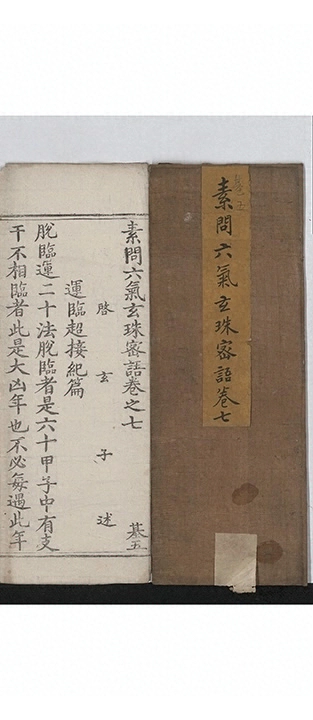 素問六氣玄珠密語卷七
素問六氣玄珠密語卷之七
基五
啓玄子述
運臨超接紀篇
脫臨運二十法脫臨者是六十甲子中有支
干不相臨者此是大凶年也不必每過此年